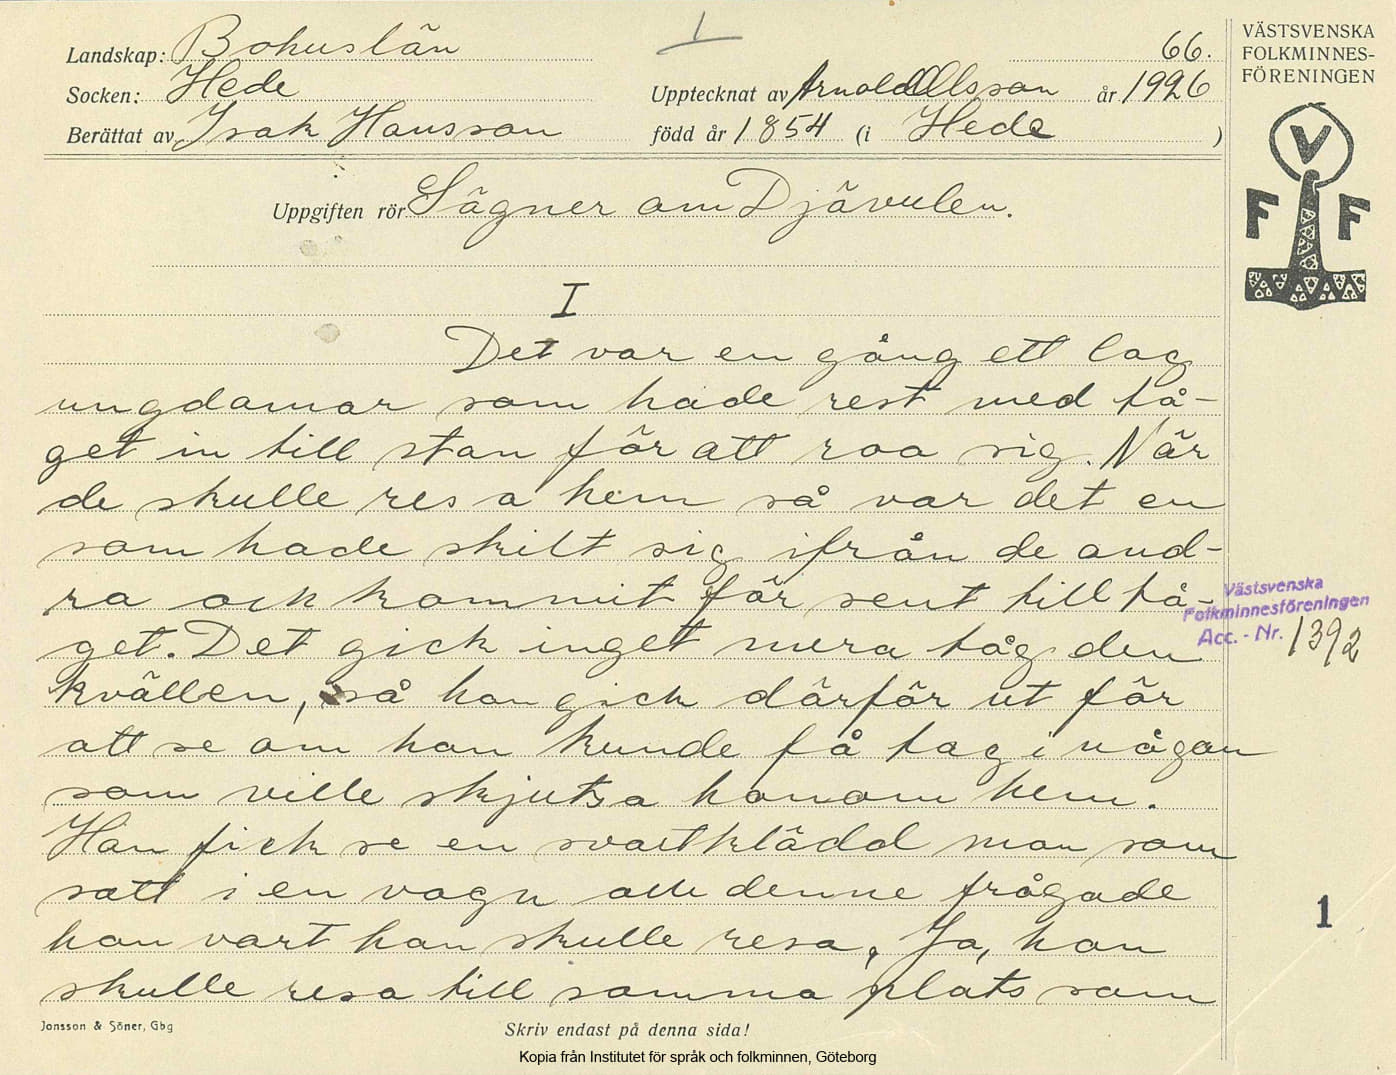 Landskap: Bohuslän
I
66.
Socken: Hede
Upptecknat av Arnold Olsson år 1926
Berättat av Isak Hansson
född år 1854 (i Hede )
Uppgiften rör Sägner om Djävulen.
I
Det var en gång ett lag
ungdomar som hade rest med tå-
get in till stan för att roa sig. När
de skulle resa hem så var det en
som hade skilt sig ifrån de and-
ra och kommit för sent till tå-
get. Det gick inget mera tåg den
kvällen, så han gick därför ut för
att se om han kunde få tag i någon
som ville skjutsa honom hem.
Han fick se en svartklädd man som
satt i en vagn och denne frågade
han vart han skulle resa. Ja, han
skulle resa till samma plats som
Jonsson & Söner, Gbg
Skriv endast på denna sida!
VÄSTSVENSKA
FOLKMINNES-
FÖRENINGEN
V
F F
Västsvenska
Folkminnesföreningen
Acc. - Nr. 1392
1
Kopia från Institutet för språk och folkminnen, Göteborg